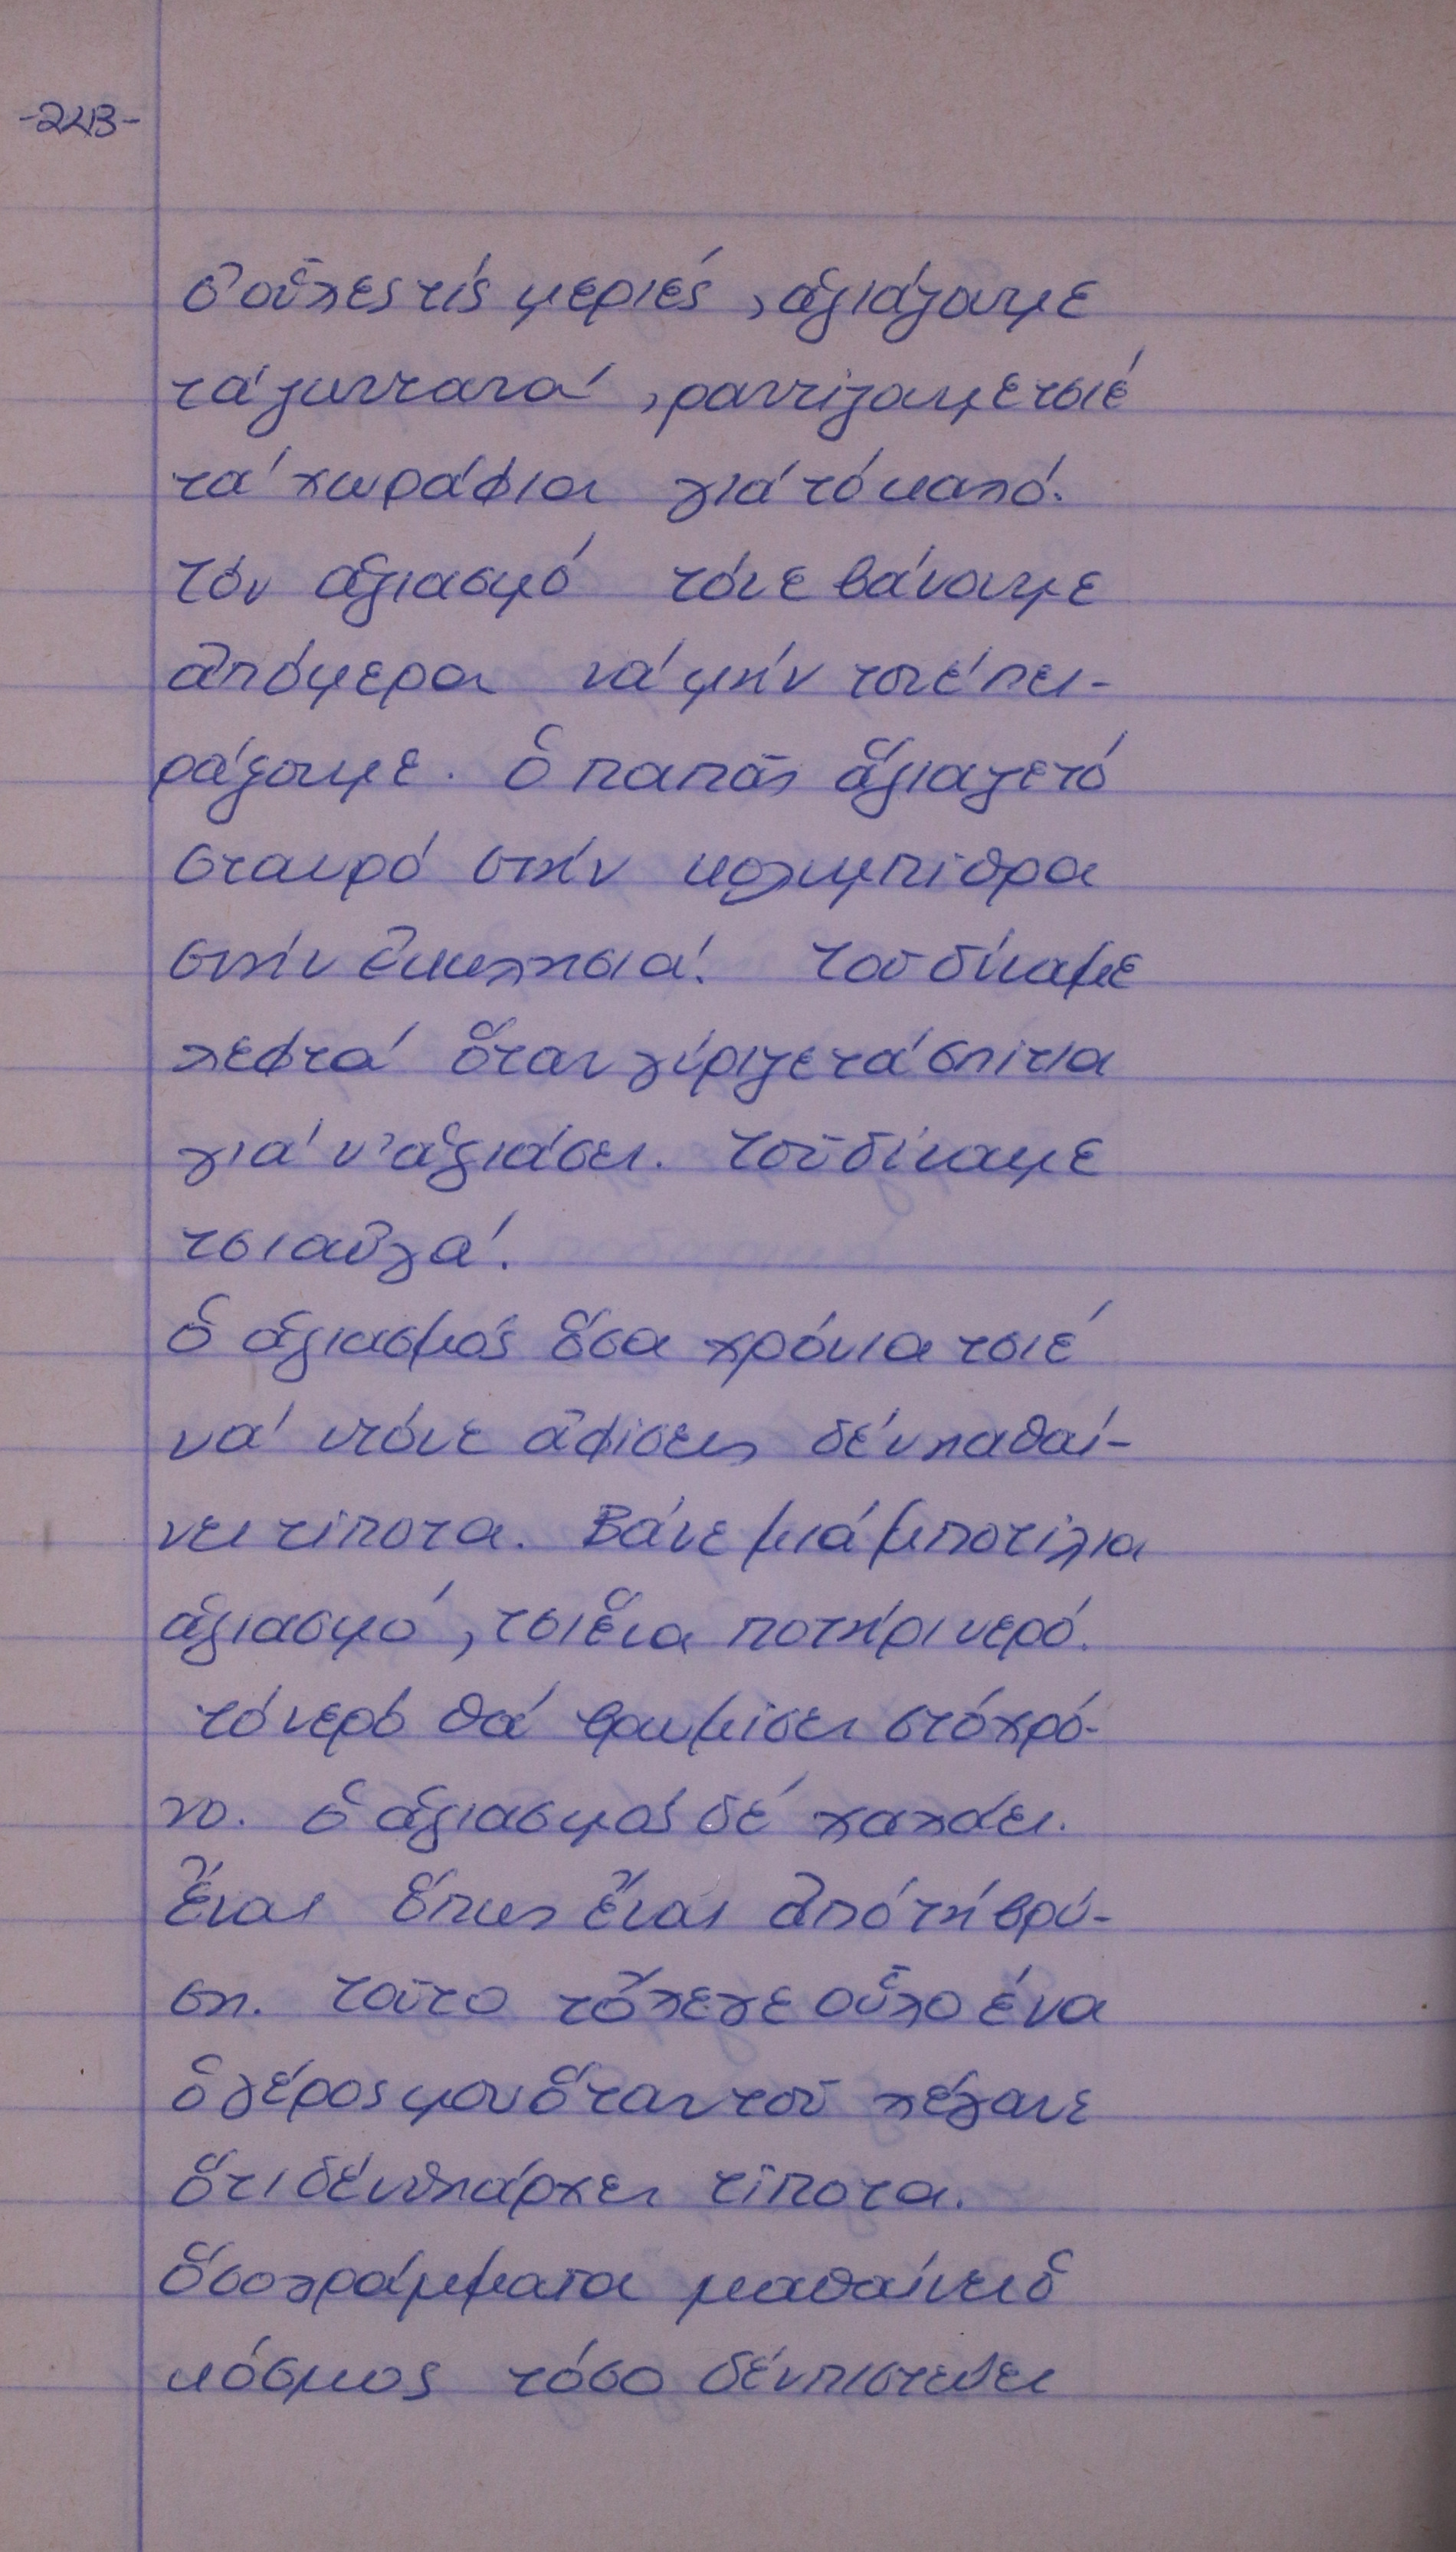 -243-
σ'οὗλες τίς μεριές, ἁγιάζαμε
τά ζωντανά, ραντίζαμε τσιέ
τά χωράφια γιά τό καλό.
Τόν ἁγιασμό τόνε βάναμε
ἀπόμερα νά μήν τσιέ πει-
ράζουμε. Ὁ παπᾶς ἅγιαζε τό
σταυρό στήν κολυμπίθρα
στήν ἐκκλησιά. Τοῦ δίκαμε
λεφτά ὅταν γίριζε τά σπίτια
γιά ν'ἁγιάσει. Τοῦ δίκαμε
τσι αὐγά.
Ὁ ἁγιασμός ὅσα χρόνια τσιέ
νά ντόνε ἀφίσεις δέν παθαί-
νει τίποτα. Βάνε μιά μποτίλια
ἁγιασμό, τσι ἕνα ποτήρι νερό.
τό νερό θά βρωμίσει στό χρό-
νο. Ὁ ἁγιασμός δέ χαλάει.
Ἔναι ὅπως ἔναι ἀπό τή βρύ-
ση. Τοῦτο τὄλεγε οὗλο ἕνα
ὁ γέρος μου ὅταν τοῦ λέγανε
ὅτι δέν ὑπάρχει τίποτα.
Ὅσο γράμματα μαθαίνει ὁ
κόσμος τόσο δέν πιστεύει